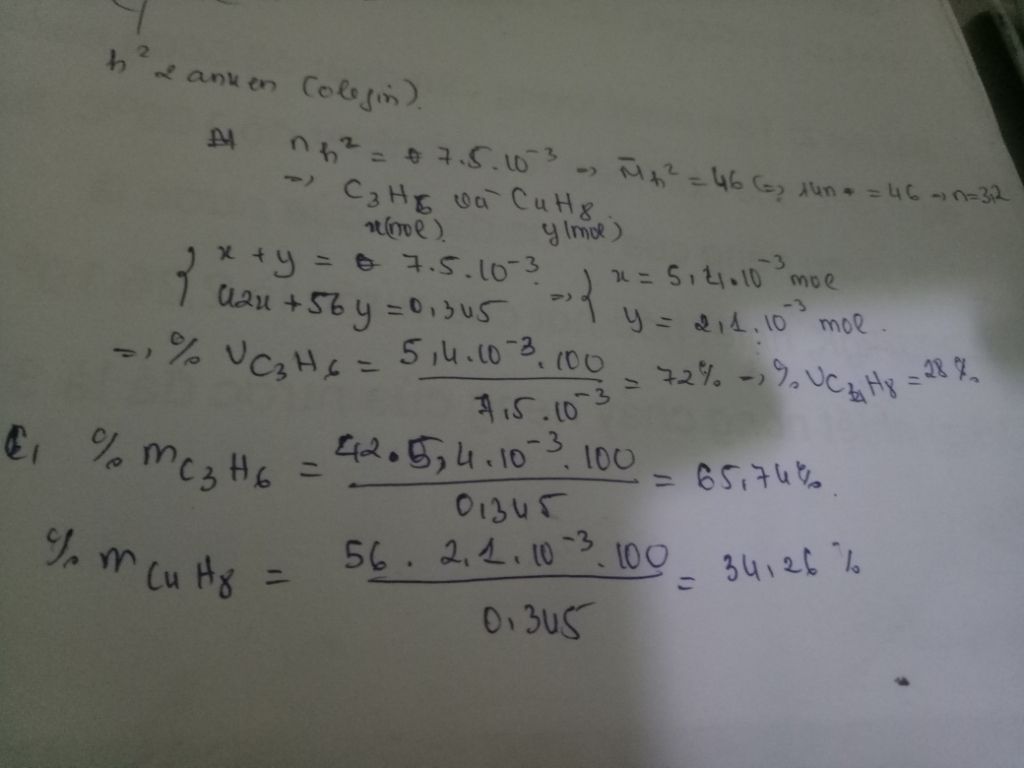 h² 2 anken (olefin).
n h² = 7.5.10⁻³ → M̄ h² = 46 <=> 14n = 46 → n=3,2
=> C₃H₆ và C₄H₈
x(mol) y(mol)
{ x + y = 7.5.10⁻³ => { x = 5,4.10⁻³ mol
42x + 56y = 0,345 y = 2,1.10⁻³ mol.
=> % V C₃H₆ = 5,4.10⁻³.100 / 7,5.10⁻³ = 72% → % V C₄H₈ = 28%
C, % m C₃H₆ = 42.5,4.10⁻³.100 / 0,345 = 65,74%.
% m C₄H₈ = 56. 2,1.10⁻³.100 / 0,345 = 34,26 %